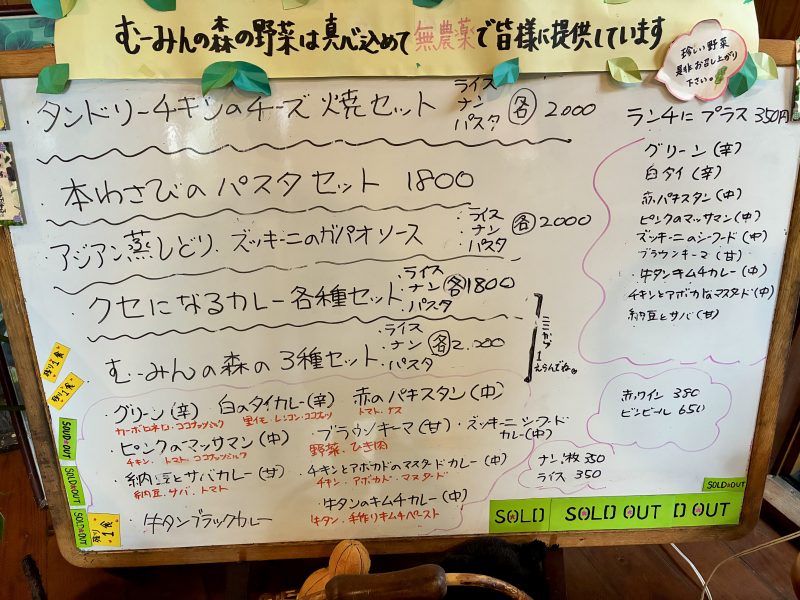 むーみんの森の野菜は真心込めて無農薬で皆様に提供しています
珍しい野菜
是非お召し上がり
下さい。
タンドリーチキンのチーズ焼セット
・ライス
・ナン
・パスタ
各 2000
本わさびのパスタセット 1800
アジアン蒸しどり、ズッキーニのガパオソース
・ライス
・ナン
・パスタ
各 2000
クセになるカレー各種セット
・ライス
・ナン
・パスタ
各 1800
むーみんの森の3種セット
・ライス
・ナン
・パスタ
各 2.000
ここから
1
えらんでね。
・グリーン(辛)
白のタイカレー(辛)
赤のパキスタン(中)
里イモ レンコン・ココナッツ
トマト、ナス
・ピンクのマッサマン(中)
チキン、トマト、ココナッツミルク
・ブラウンキーマ(甘)
野菜、ひき肉
・ズッキーニシーフード
カレー(中)
・納豆とサバカレー(甘)
納豆、サバ、トマト
・チキンとアボカドのマスタードカレー(中)
チキン、アボカド、マスタード
・牛タンブラックカレー
・牛タンのキムチカレー(中)
牛タン、手作りキムチペースト
ランチに プラス 350円
グリーン(辛)
白タイ(辛)
赤パキスタン(中)
ピンクのマッサマン(中)
ズッキーニのシーフード(中)
ブラウンキーマ(甘)
牛タンキムチカレー(中)
チキンとアボカドのマスタード(中)
納豆とサバ(甘)
赤ワイン 380
ビンビール 650
ナン1枚 350
ライス 350
SOLD OUT
SOLD OUT
SOLD OUT
SOLD OUT
SOLD
SOLD OUT
D OUT